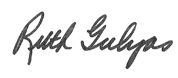 Ruth Gulyas